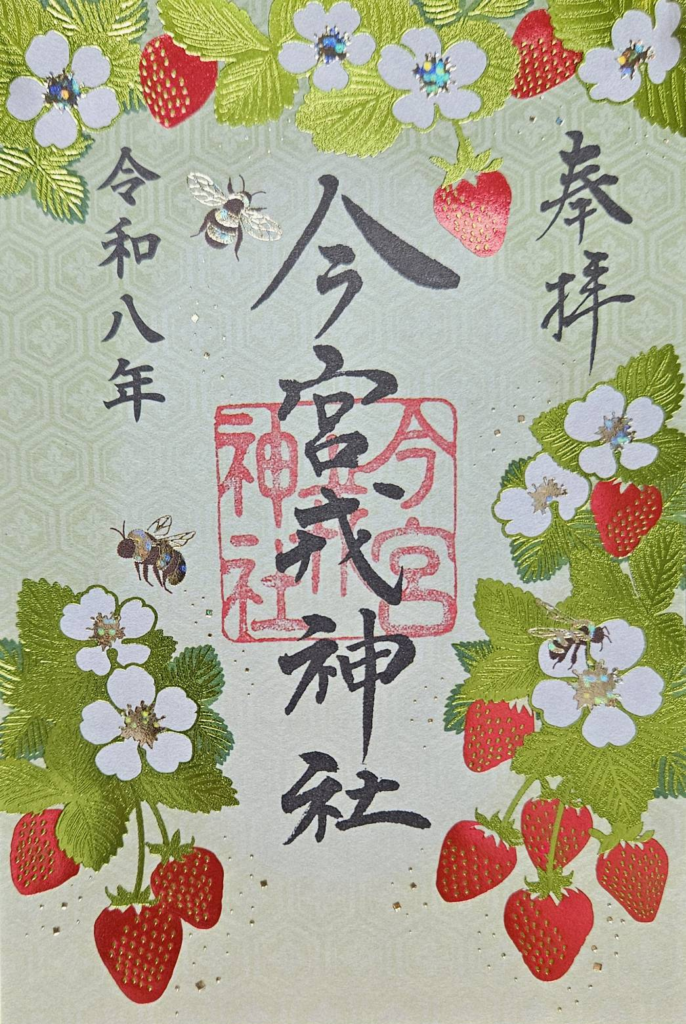 奉拝
今宮戎神社
今宮
戎
神社
令和八年